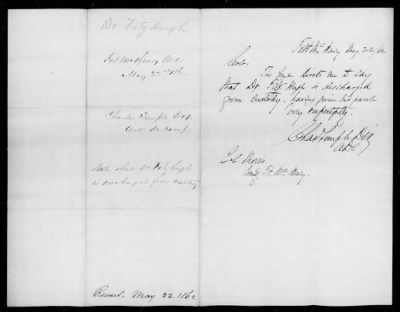 Dr Fitzhugh
Ft McHenry Md.
May 22nd 1862
Charles Temple Dix
Aide de camp.
Note that Dr Fitz Hugh
is discharged from custody
Recvd. May 22. 1862
Fort McHenry May 22/62
Col.
The Genl directs me to say
that Dr. Fitz Hugh is discharged
from custody, having given his parole
Very respectfully,
Chas Temple Dix
ADC
Col Morris
Comdg Ft. McHenry.